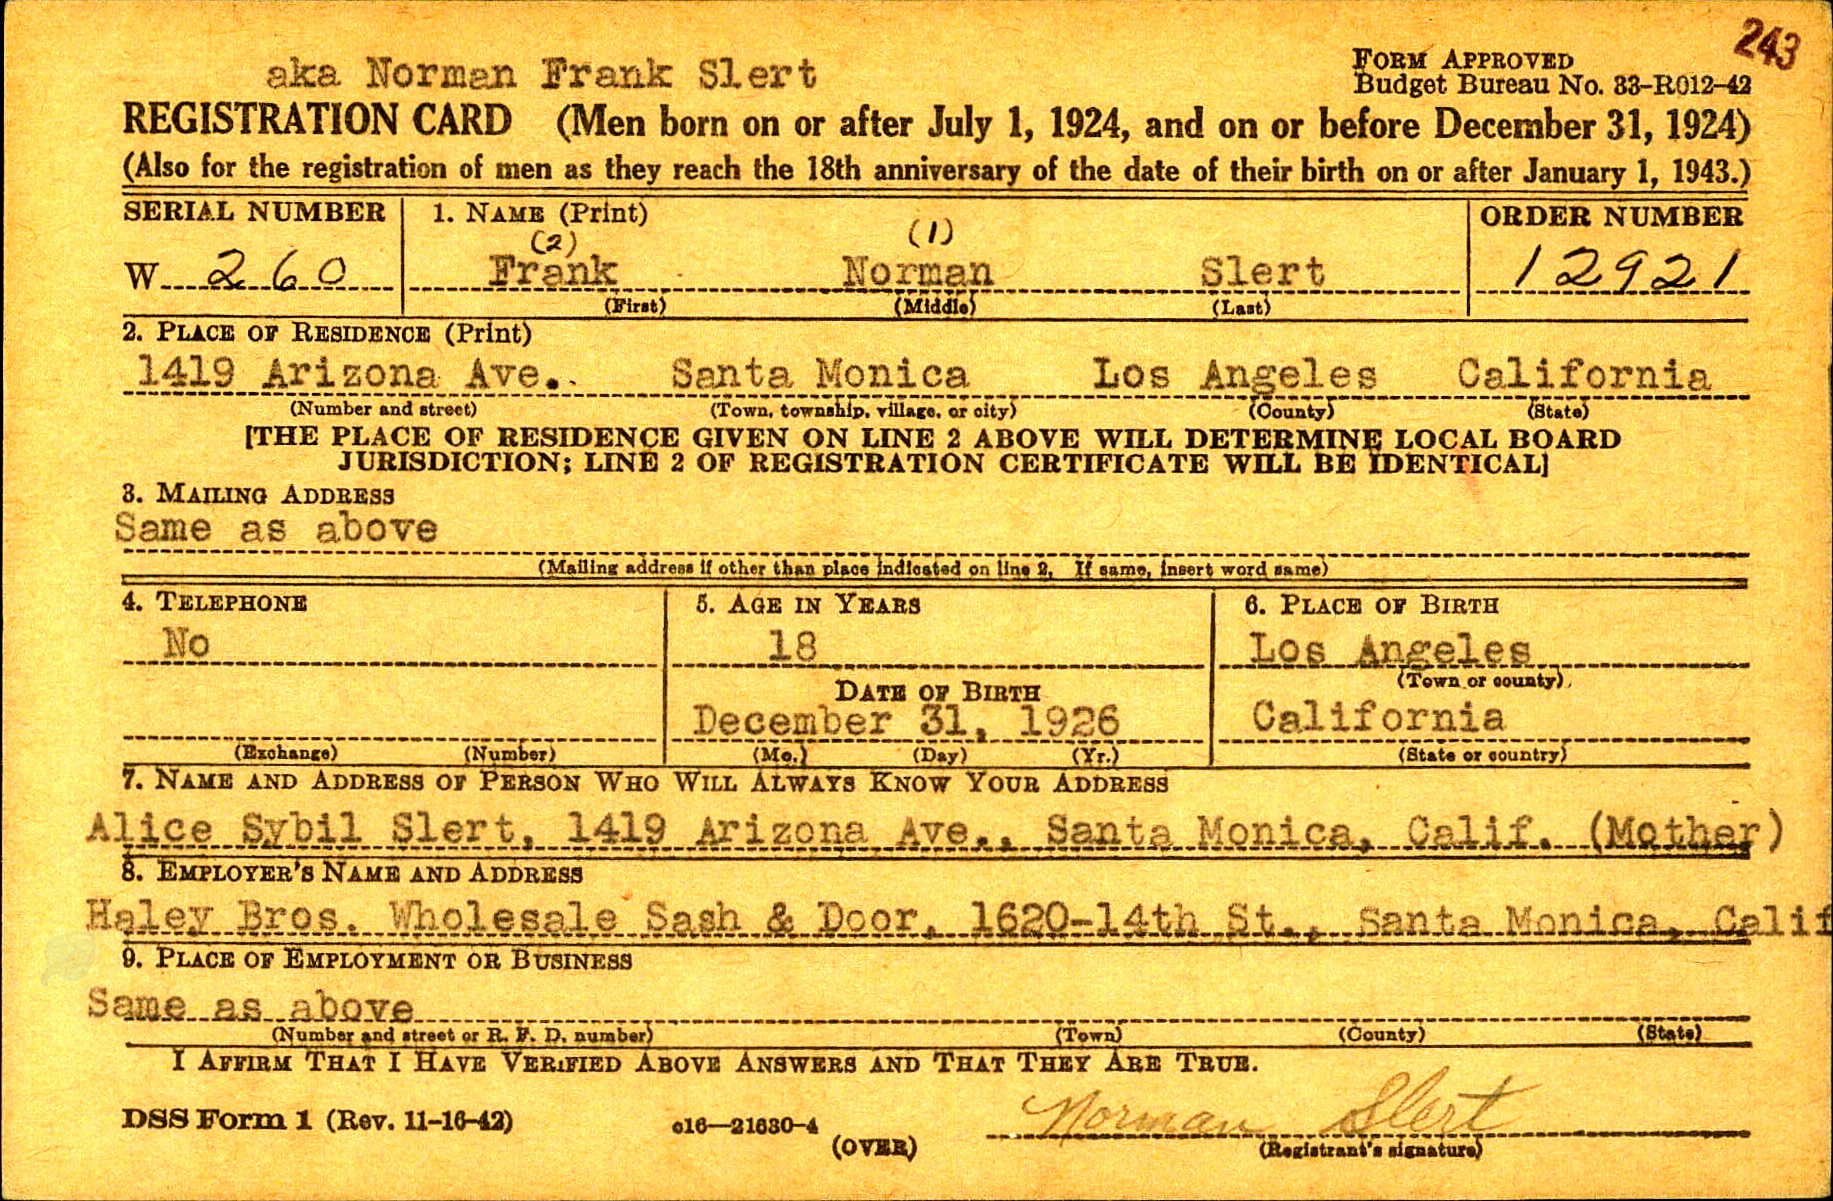 243
aka Norman Frank Slert
FORM APPROVED
Budget Bureau No. 33-R012-42
REGISTRATION CARD (Men born on or after July 1, 1924, and on or before December 31, 1924)
(Also for the registration of men as they reach the 18th anniversary of the date of their birth on or after January 1, 1943.)
SERIAL NUMBER 1. NAME (Print) ORDER NUMBER
(2) (1)
W 260 Frank Norman Slert 12921
(First) (Middle) (Last)
2. PLACE OF RESIDENCE (Print)
1419 Arizona Ave. Santa Monica Los Angeles California
(Number and street) (Town, township, village, or city) (County) (State)
[THE PLACE OF RESIDENCE GIVEN ON LINE 2 ABOVE WILL DETERMINE LOCAL BOARD
JURISDICTION; LINE 2 OF REGISTRATION CERTIFICATE WILL BE IDENTICAL]
3. MAILING ADDRESS
Same as above
(Mailing address if other than place indicated on line 2. If same, insert word same)
4. TELEPHONE 5. AGE IN YEARS 6. PLACE OF BIRTH
No 18 Los Angeles
(Town or county)
DATE OF BIRTH
December 31, 1926 California
(Exchange) (Number) (Mo.) (Day) (Yr.) (State or country)
7. NAME AND ADDRESS OF PERSON WHO WILL ALWAYS KNOW YOUR ADDRESS
Alice Sybil Slert, 1419 Arizona Ave., Santa Monica, Calif. (Mother)
8. EMPLOYER'S NAME AND ADDRESS
Haley Bros. Wholesale Sash & Door, 1620-14th St., Santa Monica, Calif
9. PLACE OF EMPLOYMENT OR BUSINESS
Same as above
(Number and street or R. F. D. number) (Town) (County) (State)
I AFFIRM THAT I HAVE VERIFIED ABOVE ANSWERS AND THAT THEY ARE TRUE.
DSS Form 1 (Rev. 11-16-42) c16—21630-4 Norman Slert
(OVER) (Registrant's signature)